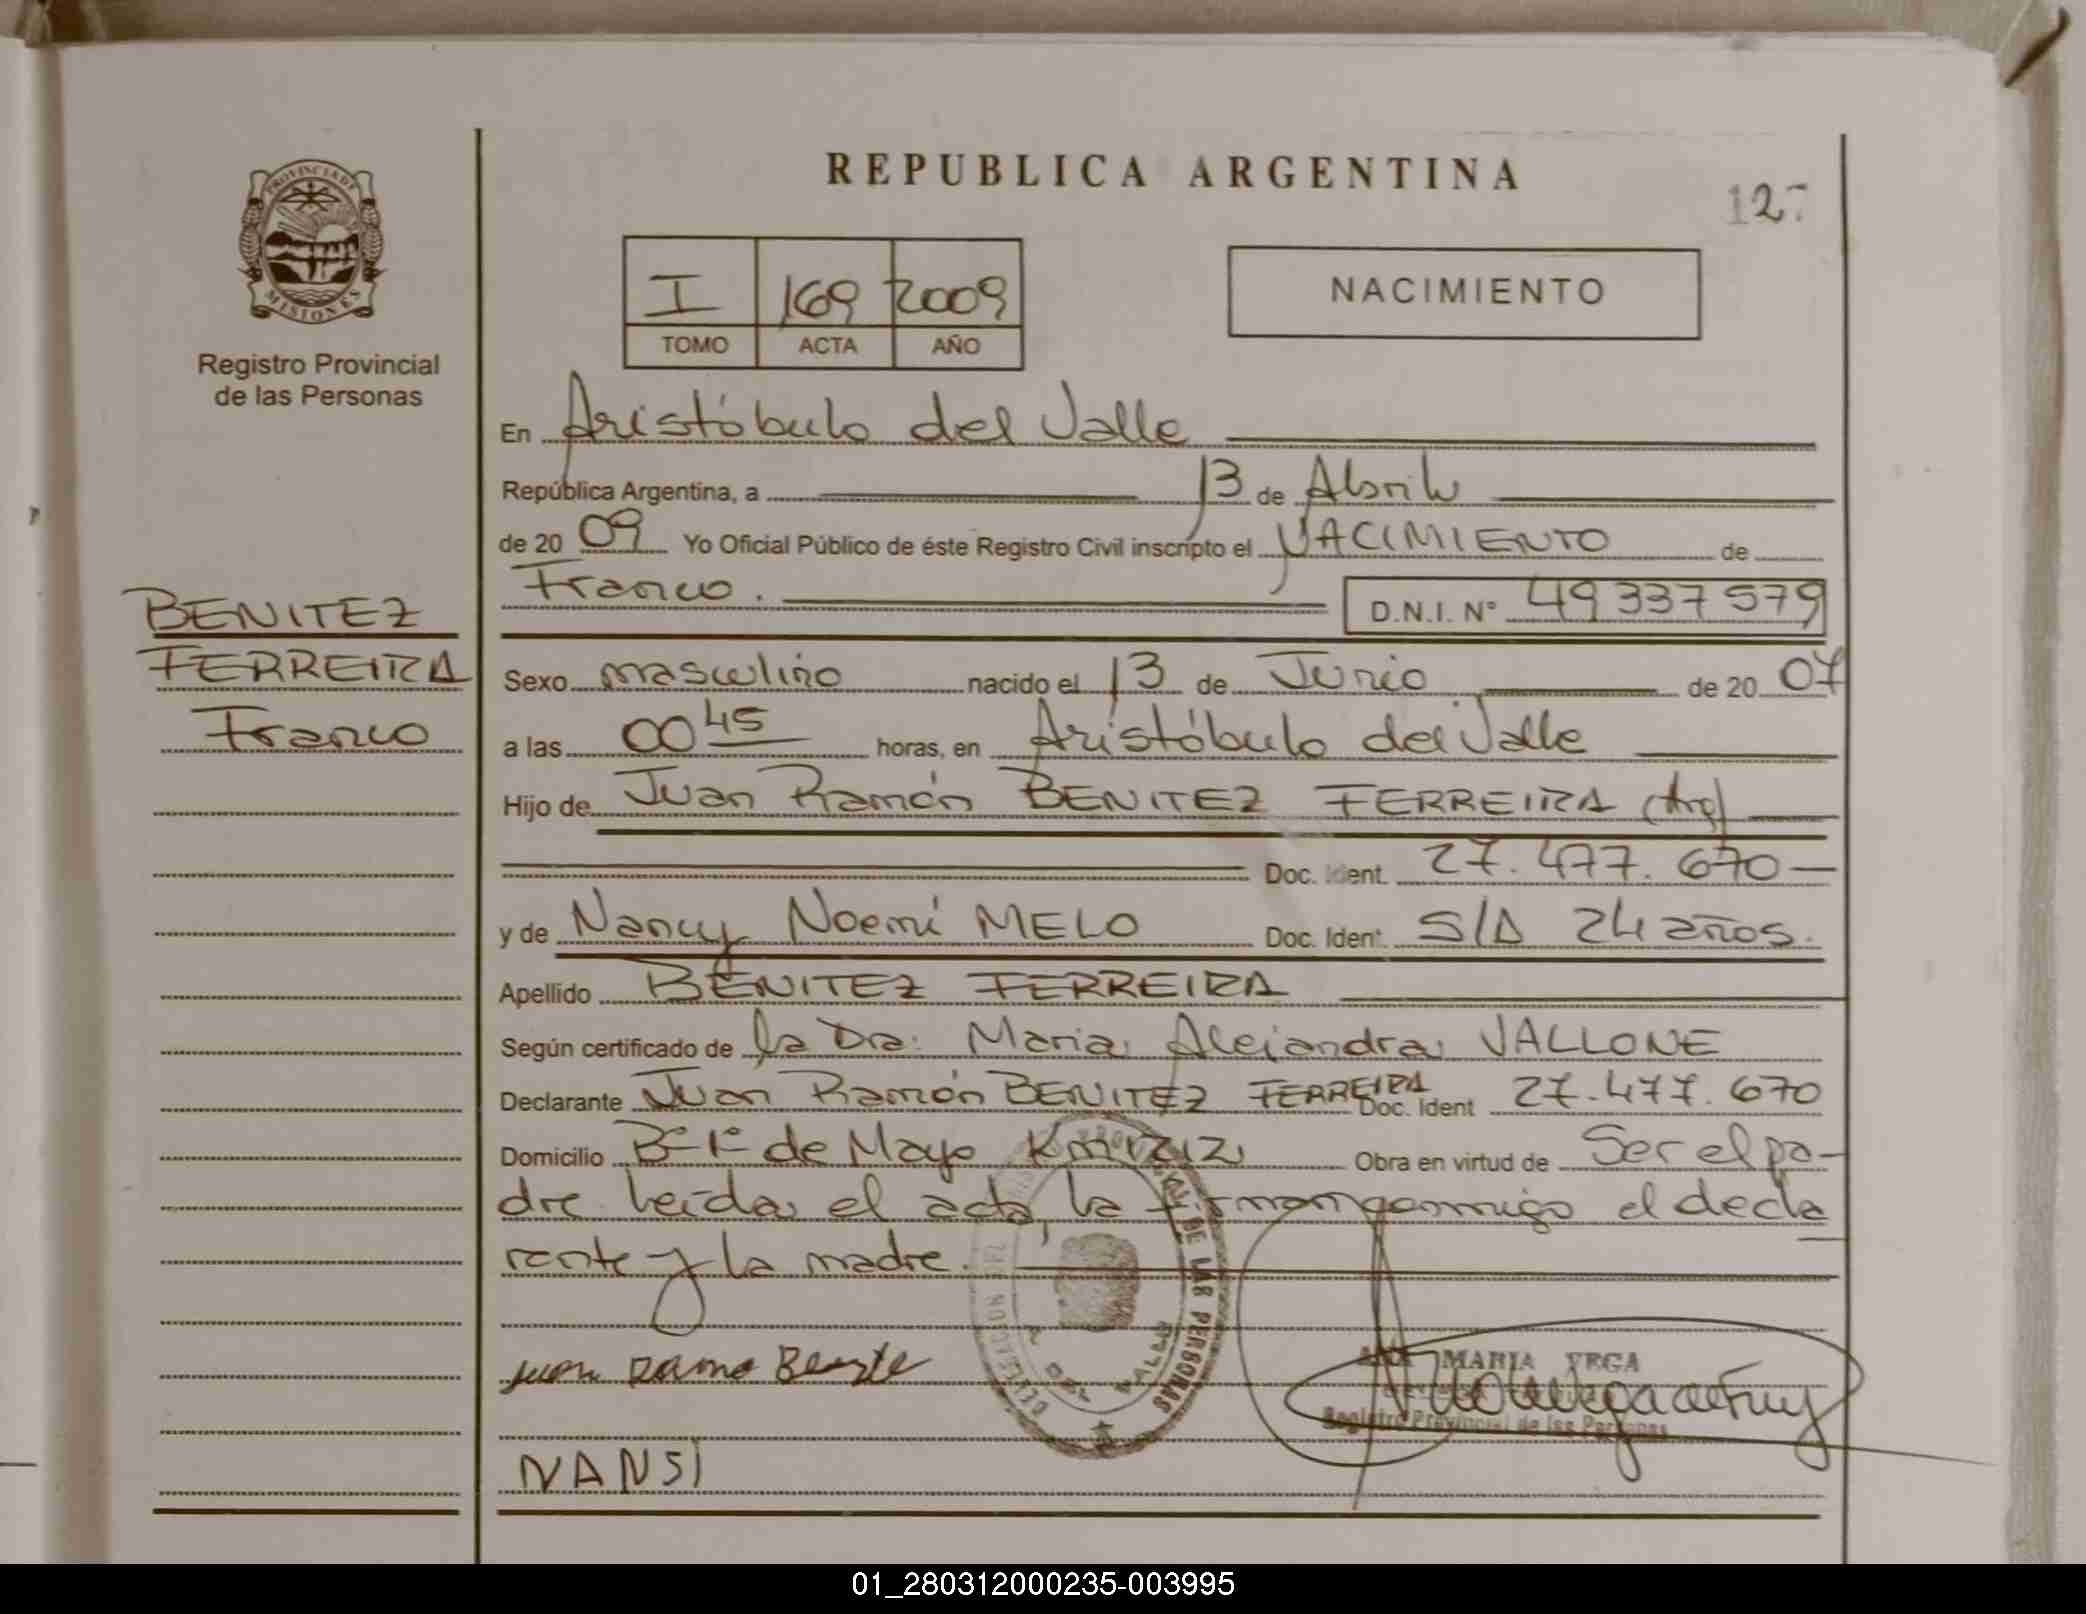 PROVINCIA DE
MISIONES
Registro Provincial
de las Personas
BENITEZ
FERREIRA
Franco
REPUBLICA ARGENTINA
127
I 169 2009
TOMO ACTA AÑO
NACIMIENTO
En Aristóbulo del Valle
República Argentina, a 13 de Abril
de 20 09 Yo Oficial Público de éste Registro Civil inscripto el NACIMIENTO de
Franco. D.N.I. N° 49337579
Sexo masculino nacido el 13 de Junio de 20 07
a las 00 45 horas, en Aristóbulo del Valle
Hijo de Juan Ramón BENITEZ FERREIRA (Arg)
Doc. Ident. 27.477.670
y de Nancy Noemí MELO Doc. Ident. S/D 24 años.
Apellido BENITEZ FERREIRA
Según certificado de la Dra. Maria Alejandra VALLONE
Declarante Juan Ramón BENITEZ FERREIRA Doc. Ident 27.477.670
Domicilio B° 1° de Mayo Km 1212 Obra en virtud de Ser el pa-
dre. Leída el acta, la firman conmigo el decla
rante y la madre.
DE LAS PERSONAS
DEL VALLE
Juan Ramo
MARIA VEGA
Registro Provincial de las Personas
NANSI
01_280312000235-003995